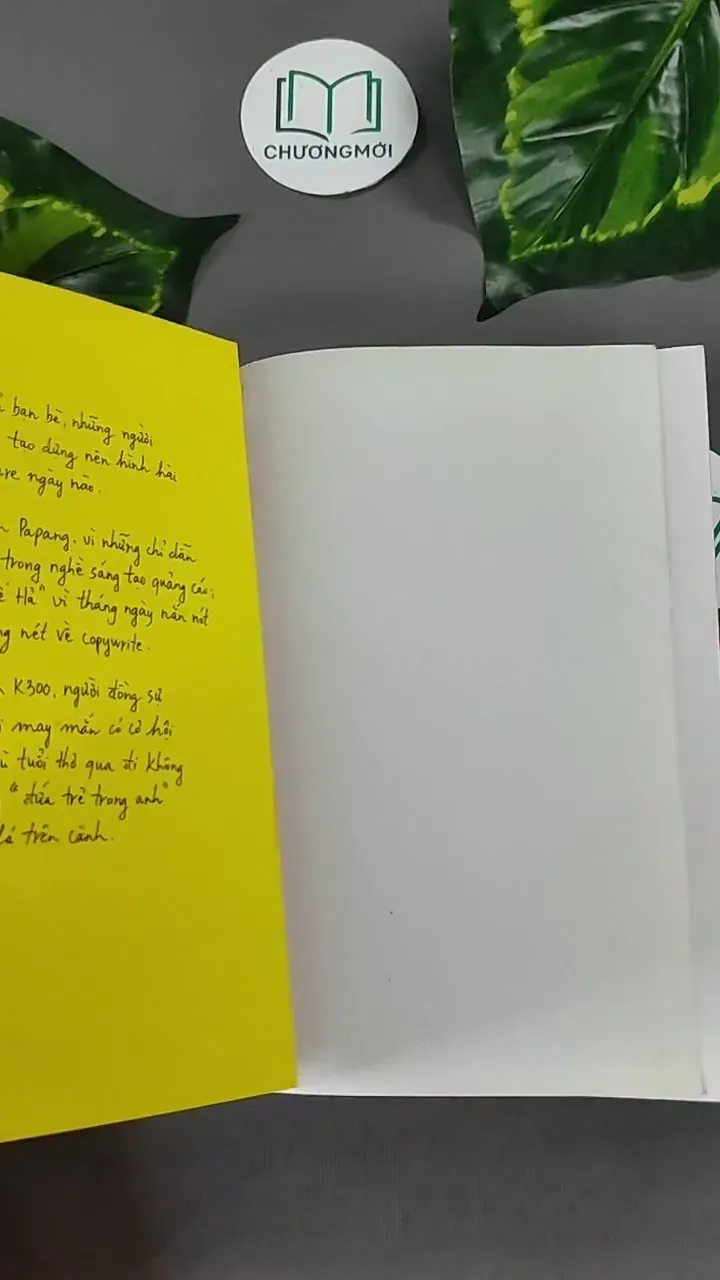 CHƯƠNGMỚI
bạn bè, những người
tạo dựng nên hình hài
ngày nào.
Papang, vì những chỉ dẫn
trong nghề sáng tạo quảng cáo;
Hả" vì tháng ngày nắn nót
nét về copywrite.
K300, người đồng sự
may mắn có cơ hội
tuổi thơ qua đi không
"đứa trẻ trong anh"
trên cành.